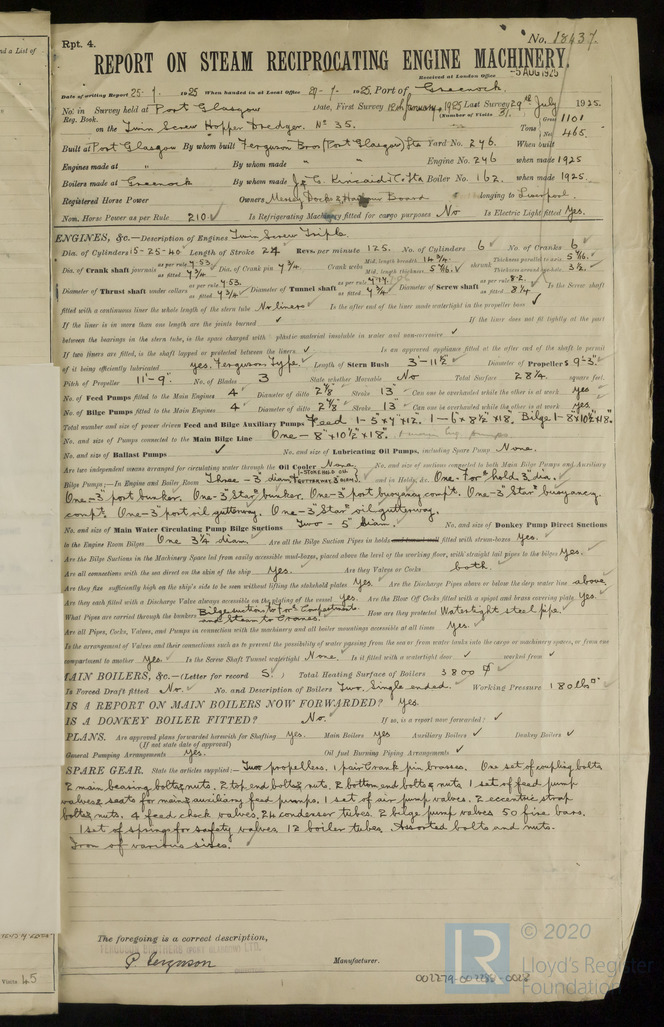 nd a List of
Rpt. 4.
No. 18437.
REPORT ON STEAM RECIPROCATING ENGINE MACHINERY.
Received at London Office -5 AUG 1925
Date of writing Report 25-7-1925 When handed in at Local Office 29-7-1925 Port of Greenock.
No. in Survey held at Port Glasgow Date, First Survey January 1925 Last Survey 29th July 1925.
Reg. Book. (Number of Visits 31.)
on the Twin Screw Hopper Dredger. No 35. Tons Gross 1101 Net 465.
Built at Port Glasgow By whom built Ferguson Bros (Port Glasgow) Ltd Yard No. 246. When built
Engines made at " By whom made " " Engine No. 246 when made 1925
Boilers made at Greenock By whom made J. G. Kincaid & Co. Ltd Boiler No. 162. when made 1925.
Registered Horse Power Owners Mersey Dock & Harbour Board belonging to Liverpool.
Nom. Horse Power as per Rule 210. Is Refrigerating Machinery fitted for cargo purposes No Is Electric Light fitted Yes.
ENGINES, &c.—Description of Engines Twin Screw Triple.
Dia. of Cylinders 15-25-40 Length of Stroke 24 Revs. per minute 125. No. of Cylinders 6 No. of Cranks 6
Dia. of Crank shaft journals as per rule 7.53 as fitted 7¾ Dia. of Crank pin 7¾ Crank webs Mid. length breadth 14¾ Mid. length thickness 5 shrunk Thickness parallel to axis 5 Thickness around eyehole 3½
Diameter of Thrust shaft under collars as per rule 7.53 as fitted 7¾ Diameter of Tunnel shaft as per rule 7.17 as fitted 7¾ Diameter of Screw shaft as per rule 8.2 as fitted 8¼ Is the Screw shaft
fitted with a continuous liner the whole length of the stern tube No liners Is the after end of the liner made watertight in the propeller boss ✓
If the liner is in more than one length are the joints burned ✓ If the liner does not fit tightly at the part
between the bearings in the stern tube, is the space charged with a plastic material insoluble in water and non-corrosive ✓
If two liners are fitted, is the shaft lapped or protected between the liners ✓ Is an approved appliance fitted at the after end of the shaft to permit
of it being efficiently lubricated yes. Ferguson Type. Length of Stern Bush 3'-11½" Diameter of Propeller 9'-3".
Pitch of Propeller 11'-9". No. of Blades 3 State whether Moveable No Total Surface 28¼. square feet.
No. of Feed Pumps fitted to the Main Engines 4 Diameter of ditto 2⅞" Stroke 13" Can one be overhauled while the other is at work yes
No. of Bilge Pumps fitted to the Main Engines 4 Diameter of ditto 2⅞" Stroke 13" Can one be overhauled while the other is at work yes
Total number and size of power driven Feed and Bilge Auxiliary Pumps Feed 1-5"x7"x12. 1-6"x8½"x18. Bilge 1-8"x10½"x18.
No. and size of Pumps connected to the Main Bilge Line One - 8"x10½"x18".
No. and size of Ballast Pumps ✓ No. and size of Lubricating Oil Pumps, including Spare Pump None.
Are two independent means arranged for circulating water through the Oil Cooler None. No. and size of suctions connected to both Main Bilge Pumps and Auxiliary
Bilge Pumps;—In Engine and Boiler Room Three - 3" diam and in Holds, &c. One For'd hold 3" dia.
One-3" port bunker. One-3" Star'd bunker. One-3" port buoyancy comp't. One-3" Star'd buoyancy
comp't. One-3" port oil gutterway. One-3" Star'd oil gutterway.
No. and size of Main Water Circulating Pump Bilge Suctions Two - 5" diam. No. and size of Donkey Pump Direct Suctions
to the Engine Room Bilges One 3¾ diam. Are all the Bilge Suction Pipes in holds fitted with strum-boxes Yes.
Are the Bilge Suctions in the Machinery Space led from easily accessible mud-boxes, placed above the level of the working floor, with straight tail pipes to the bilges Yes.
Are all connections with the sea direct on the skin of the ship Yes. Are they Valves or Cocks both.
Are they fixed sufficiently high on the ship's side to be seen without lifting the stokehold plates Yes Are the Discharge Pipes above or below the deep water line above.
Are they each fitted with a Discharge Valve always accessible on the plating of the vessel Yes. Are the Blow Off Cocks fitted with a spigot and brass covering plate Yes.
What Pipes are carried through the bunkers Bilge suction to For'd Compartments and Steam to Cranes. How are they protected Watertight steel pipe.
Are all Pipes, Cocks, Valves, and Pumps in connection with the machinery and all boiler mountings accessible at all times Yes.
Is the arrangement of Valves and their connections such as to prevent the possibility of water passing from the sea or from water tanks into the cargo or machinery spaces, or from one
compartment to another Yes. Is the Screw Shaft Tunnel watertight None. Is it fitted with a watertight door ✓ worked from ✓
MAIN BOILERS, &c.—(Letter for record S.) Total Heating Surface of Boilers 3800
Is Forced Draft fitted No. No. and Description of Boilers Two, Single ended. Working Pressure 180 lbs
IS A REPORT ON MAIN BOILERS NOW FORWARDED? Yes.
IS A DONKEY BOILER FITTED? No. If so, is a report now forwarded? ✓
PLANS. Are approved plans forwarded herewith for Shafting Yes. Main Boilers Yes Auxiliary Boilers ✓ Donkey Boilers ✓
(If not state date of approval)
General Pumping Arrangements Yes. Oil fuel Burning Piping Arrangements ✓
SPARE GEAR. State the articles supplied:— Two propellers. 1 pair Crank pin brasses. One set of coupling bolts
2 main bearing bolts & nuts. 2 top end bolts & nuts. 2 bottom end bolts & nuts 1 set of feed pump
valves & seats for main & auxiliary feed pumps. 1 set of air pump valves. 2 eccentric strap
bolts & nuts. 4 feed check valves. 24 condenser tubes. 2 bilge pump valves 50 fire bars.
1 set of springs for safety valves 12 boiler tubes. Assorted bolts and nuts.
Iron of various sizes.
The foregoing is a correct description,
FERGUSON BROTHERS (PORT GLASGOW) LTD.
P Ferguson Manufacturer.
Visits 45
002279-002286-0022
LR
© 2020
Lloyd's Register
Foundation